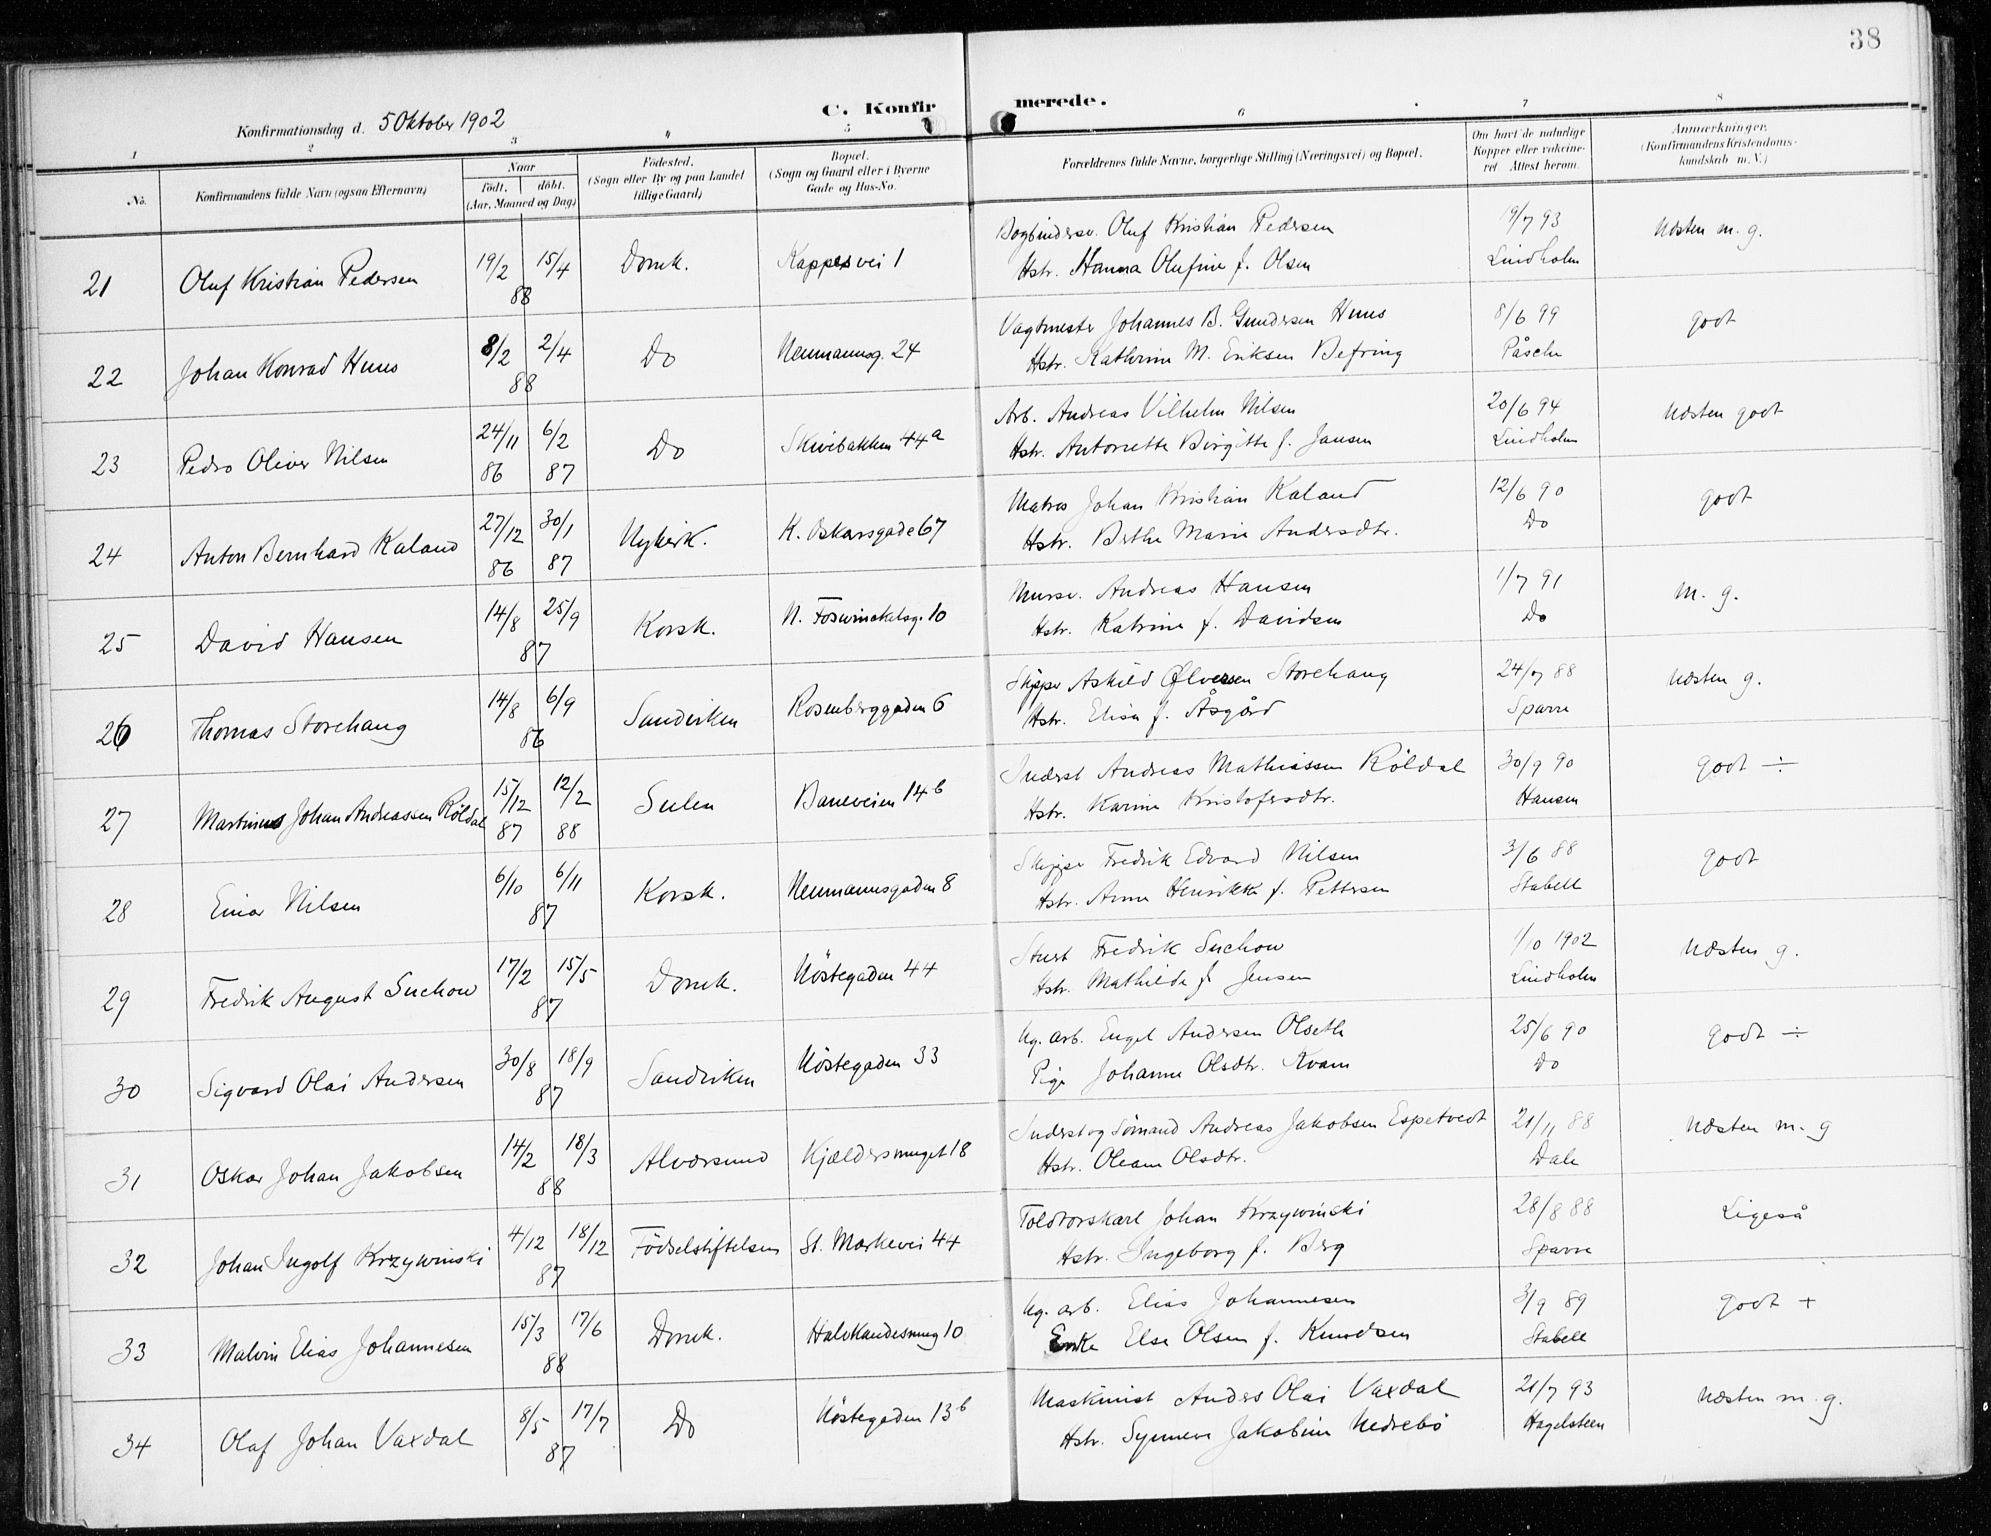 38
C. Konfirmerede.
Konfirmationsdag d. 5 Oktober 1902
1 2 3 4 5 6 7 8
No.
Konfirmandens fulde Navn (ogsaa Efternavn)
Naar
født. døbt.
(Aar, Maaned og Dag)
Fødested.
(Sogn eller By og paa Landet
tillige Gaard)
Bopæl.
(Sogn og Gaard eller i Byerne
Gade og Hus-No.
Forældrenes fulde Navne, borgerlige Stilling (Næringsvei) og Bopæl.
Om havt de naturlige
Kopper eller vakcine-
ret Attest herom.
Anmærkninger.
(Konfirmandens Kristendoms-
kundskab m. V.)
21 Oluf Kristian Pedersen 19/2 15/4 88 Domk. Kappesvei 1
Bogbindersv. Oluf Kristian Pedersen 19/7 93 Næsten m. g.
Hstr. Hanna Olufine f. Olsen Lindholm
22 Johan Konrad Huus 8/2 2/4 88 Do Neumannsg. 24
Vagtmester Johannes B. Gundersen Huus 8/6 99 godt
Hstr. Kathrine M. Eriksen Befring Påsche
23 Pedro Oliver Nilsen 24/11 86 6/2 87 Do Skivebakken 44a
Arb. Andreas Vilhelm Nilsen 20/6 94 Næsten godt
Hstr. Antonette Birgitte f. Jansen Lindholm
24 Anton Bernhard Kaland 27/12 86 30/1 87 Nykirk. K. Oskarsgade 67
Matros Johan Kristian Kaland 12/6 90 godt
Hstr. Berthe Marie Andersdtr. Do
25 David Hansen 14/8 25/9 87 Korsk. N. Foswinckelsg. 10
Mursv. Andreas Hansen 1/7 91 m. g.
Hstr. Katrine f. Davidsen Do
26 Thomas Storehaug 14/8 6/9 86 Sandviken Rosenberggaden 6
Skipper Askild Ølversen Storehaug 24/7 88 Næsten g.
Hstr. Elisa f. Åsgård Sparre
27 Martinus Johan Andreassen Røldal 15/12 87 12/2 88 Sulen Baneveien 14b
Inderst Andreas Mathiassen Røldal 30/9 90 godt ÷
Hstr. Karine Kristofersdtr. Hansen
28 Einar Nilsen 6/10 6/11 87 Korsk. Neumannsgaden 8
Skipper Fredrik Edvard Nilsen 3/6 88 godt
Hstr. Anne Henrikke f. Pettersen Stabell
29 Fredrik August Suchow 17/2 15/5 87 Domk. Nöstegaden 44
Stuert Fredrik Suchow 1/10 1902 Næsten g.
Hstr. Mathilde f. Jensen Lindholm
30 Sigvard Olai Andersen 30/8 18/9 87 Sandviken Nöstegaden 33
Ug. arb. Engel Andersen Olseth 25/6 90 godt ÷
Pige Johanne Olsdtr. Kvam Do
31 Oskar Johan Jakobsen 14/2 18/3 88 Alversund Kjældersmuget 18
Inderst og Sømand Andreas Jakobsen Espetvedt 21/11 88 Næsten m. g
Hstr. Oleane Olsdtr. Dale
32 Johan Ingolf Krzywinski 4/12 18/12 87 Födselstiftelsen St. Markevei 44
Toldtorskarl Johan Krzywinski 28/8 88 Ligeså
Hstr. Ingeborg f. Berg Sparre
33 Malvin Elias Johannesen 15/3 17/6 88 Domk. Halvkandesmug 10
Ug. arb. Elias Johannesen 3/9 89 godt +
Enke Else Olsen f. Knudsen Stabell
34 Olaf Johan Vaxdal 8/5 17/7 87 Do Nöstegaden 13b
Maskinist Anders Olai Vaxdal 21/7 93 Næsten m. g.
Hstr. Synneve Jakobine Nedrebö Hagelsteen